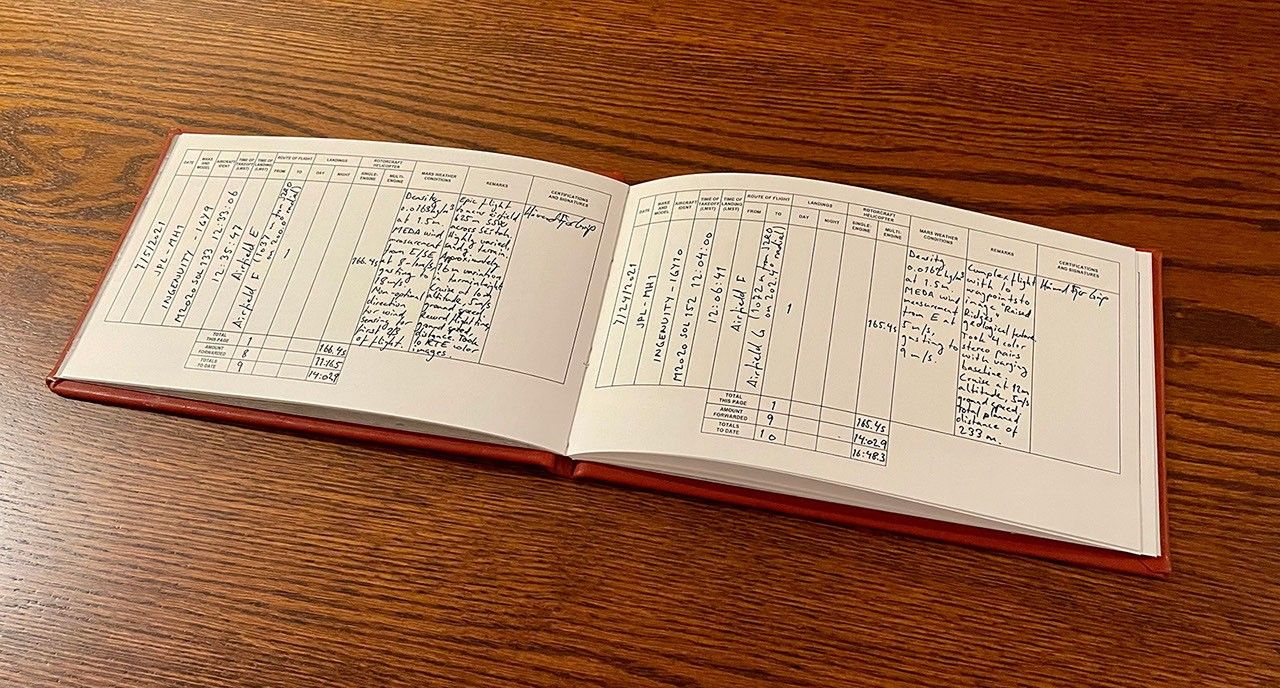 DATE
MAKE AND MODEL
AIRCRAFT IDENT
TIME OF TAKEOFF (LMST)
TIME OF LANDING (LMST)
ROUTE OF FLIGHT
FROM
TO
LANDINGS
DAY
NIGHT
ROTORCRAFT HELICOPTER
SINGLE-ENGINE
MULTI-ENGINE
MARS WEATHER CONDITIONS
REMARKS
CERTIFICATIONS AND SIGNATURES
7/5/2021
JPL-MH1
INGENUITY - 1GY9
M2020 SOL 133 12:33:06
12:35:47
Airfield E
Airfield F
1
166.4s
Density
at 1.5m
MEDA wind
measurement
from E/SE
gusting to
direction
for wind
of flight.
Epic flight
from airfield
625m SSW
across Séítah,
Highly varied,
terrain.
Approximately
Cruise at
altitude, 5m/s
ground speed.
Record flight time,
ground speed,
distance. Took
10 RTE color
images.
TOTAL THIS PAGE 1 166.4s
AMOUNT FORWARDED 8
TOTALS TO DATE 9 14:02.9
DATE
MAKE AND MODEL
AIRCRAFT IDENT
TIME OF TAKEOFF (LMST)
TIME OF LANDING (LMST)
ROUTE OF FLIGHT
FROM
TO
LANDINGS
DAY
NIGHT
ROTORCRAFT HELICOPTER
SINGLE-ENGINE
MULTI-ENGINE
MARS WEATHER CONDITIONS
REMARKS
CERTIFICATIONS AND SIGNATURES
7/24/2021
JPL-MH1
INGENUITY - 1GY10
M2020 SOL 152 12:04:00
12:06:41
Airfield F
Airfield G
1
165.4s
Density
at 1.5m
MEDA wind
measurement
from E at
5m/s,
gusting to
9m/s.
Complex flight
with 10
waypoints to
image "Raised
Ridges"
geological feature.
Took 4 color
stereo pairs
with varying
baseline.
Cruise at 12m
altitude, 5m/s
ground speed,
total planned
distance of
233m.
TOTAL THIS PAGE 1 165.4s
AMOUNT FORWARDED 9 14:02.9
TOTALS TO DATE 10 16:48.3